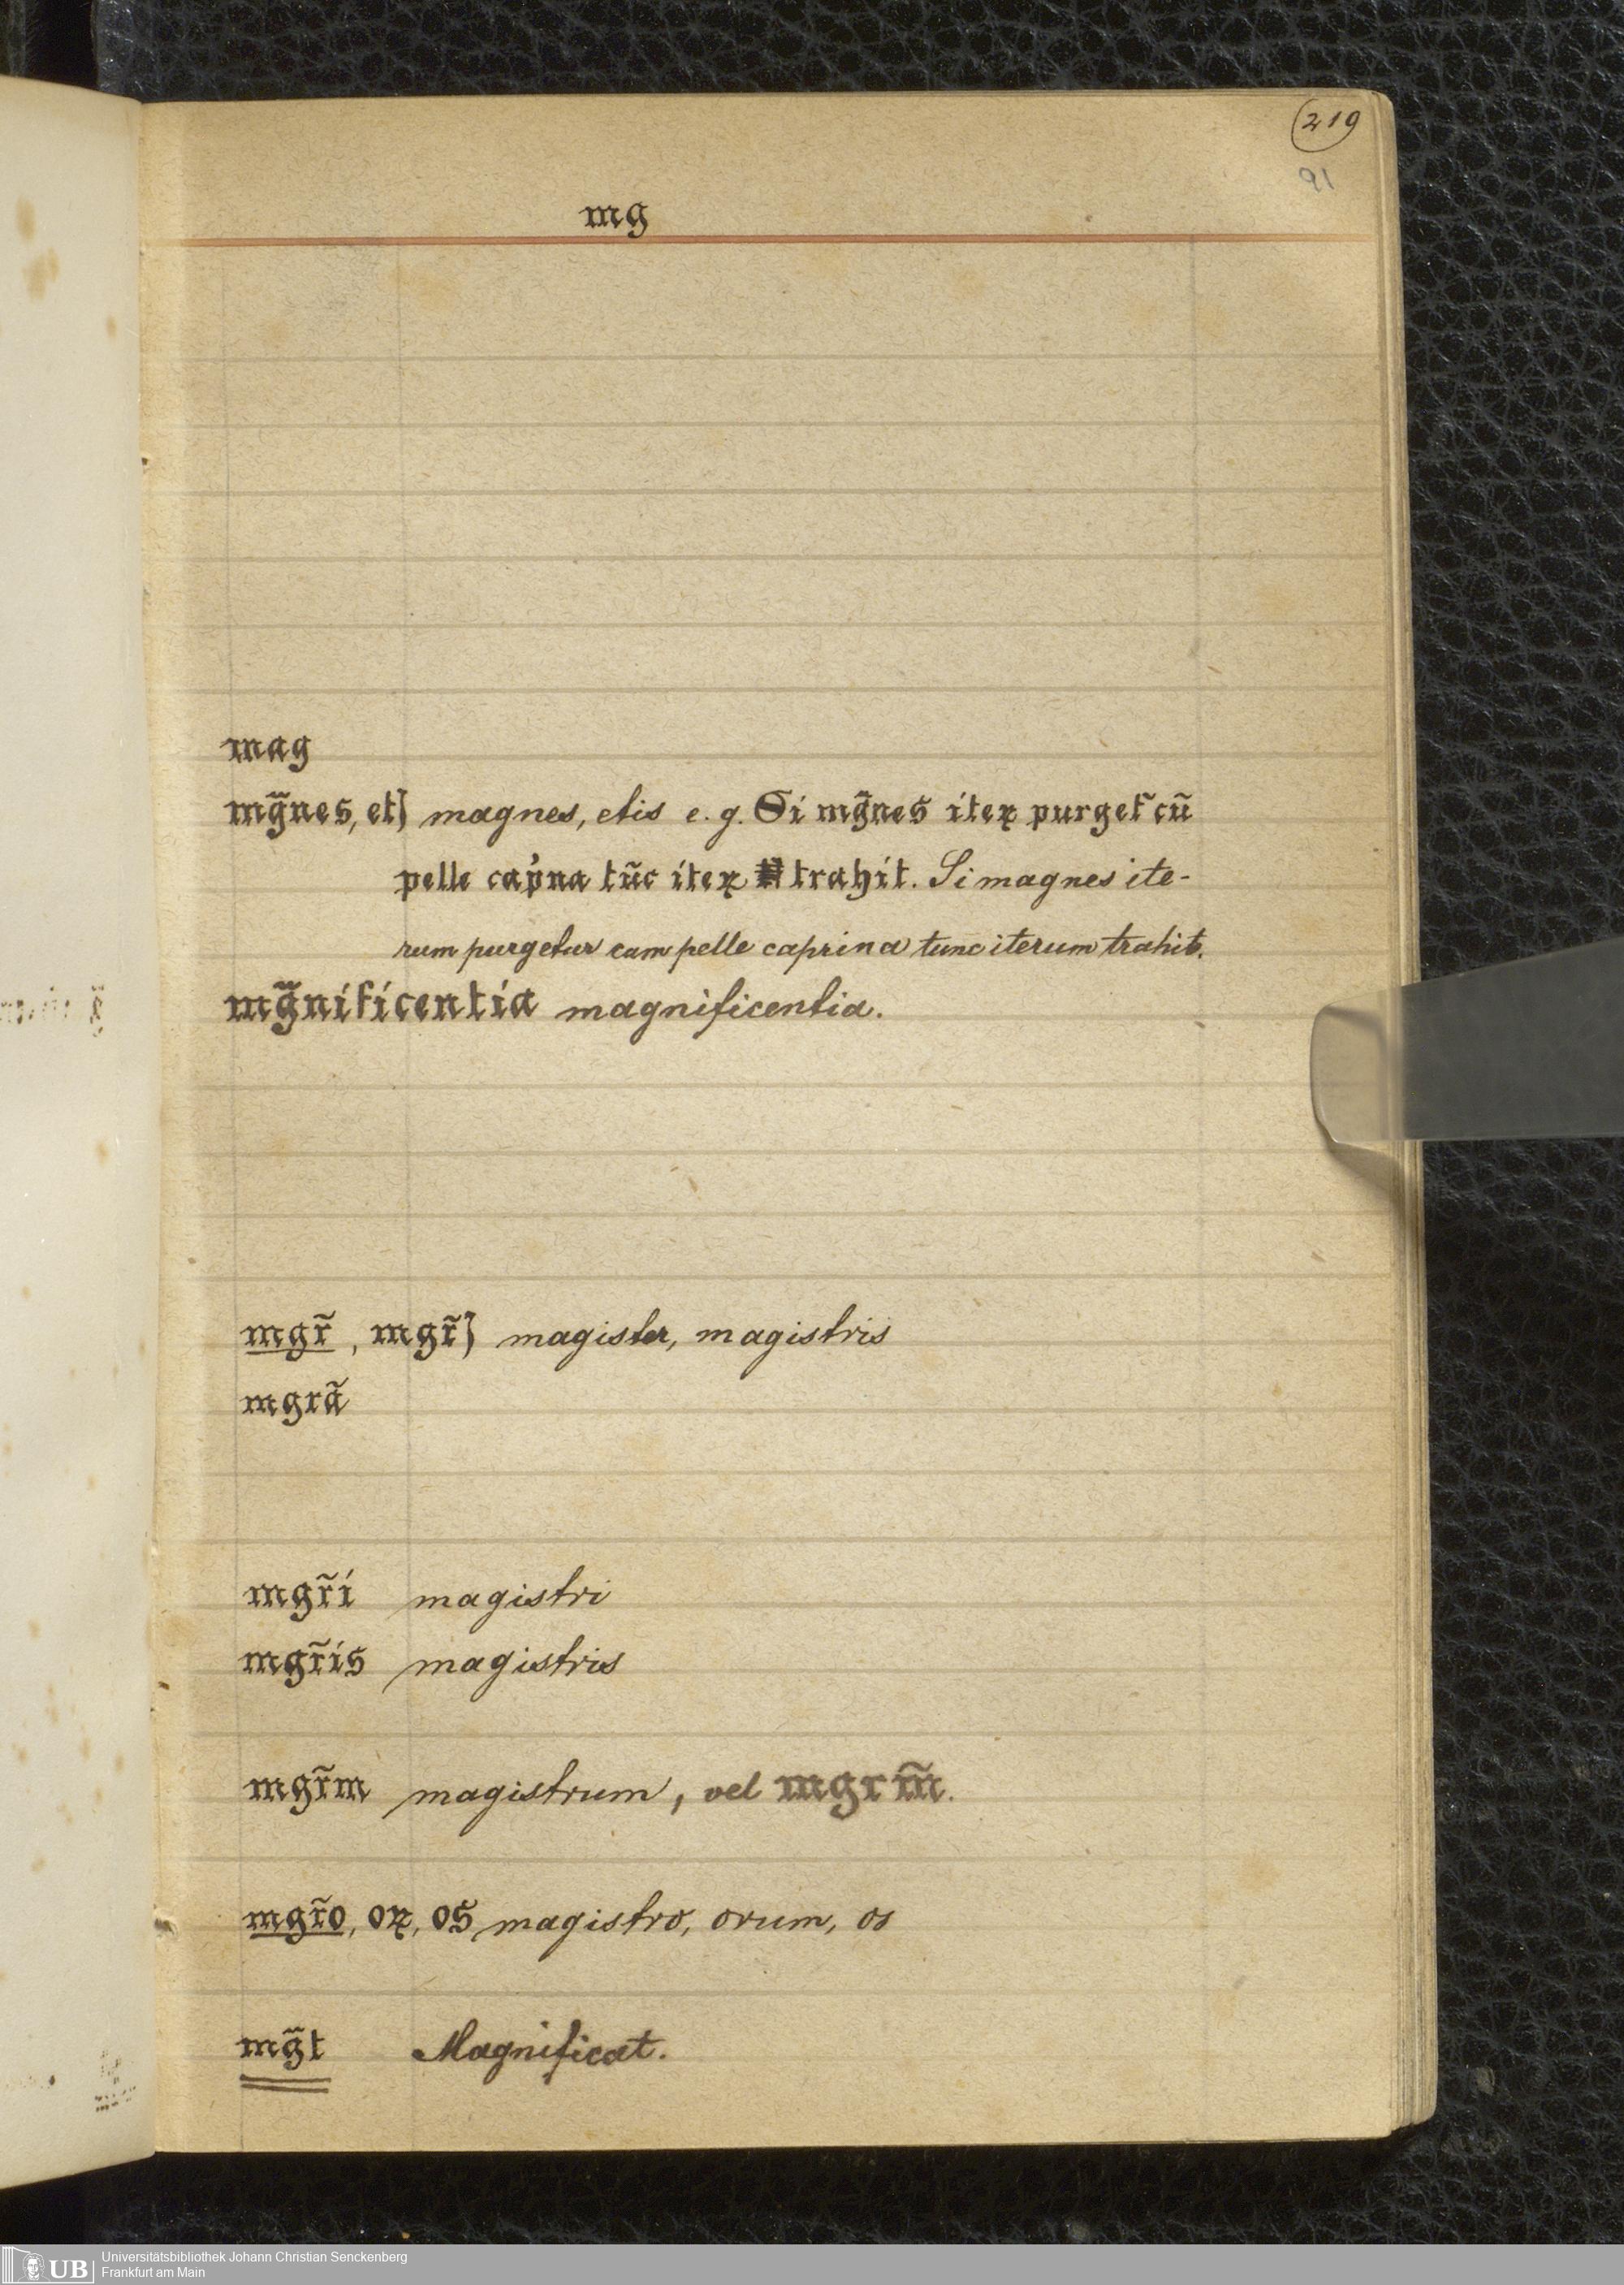 219
91
mg
mag
mg̃nes, etꝭ magnes, etis e. g. Si mg̃nes iteꝝ purget᷑ cũ
pelle cap̓na tũc iteꝝ trahit. Si magnes ite-
rum purgetur cum pelle caprina tunc iterum trahit.
mg̃nificentia magnificentia.
mgr̃, mgr̃ꝭ magister, magistris
mgrã
mgr̃i magistri
mgr̃is magistris
mgr̃m magistrum, vel mgrm̃.
mgr̃o, oꝝ, os magistro, orum, os
mg̃t Magnificat.
UB Universitätsbibliothek Johann Christian Senckenberg
Frankfurt am Main